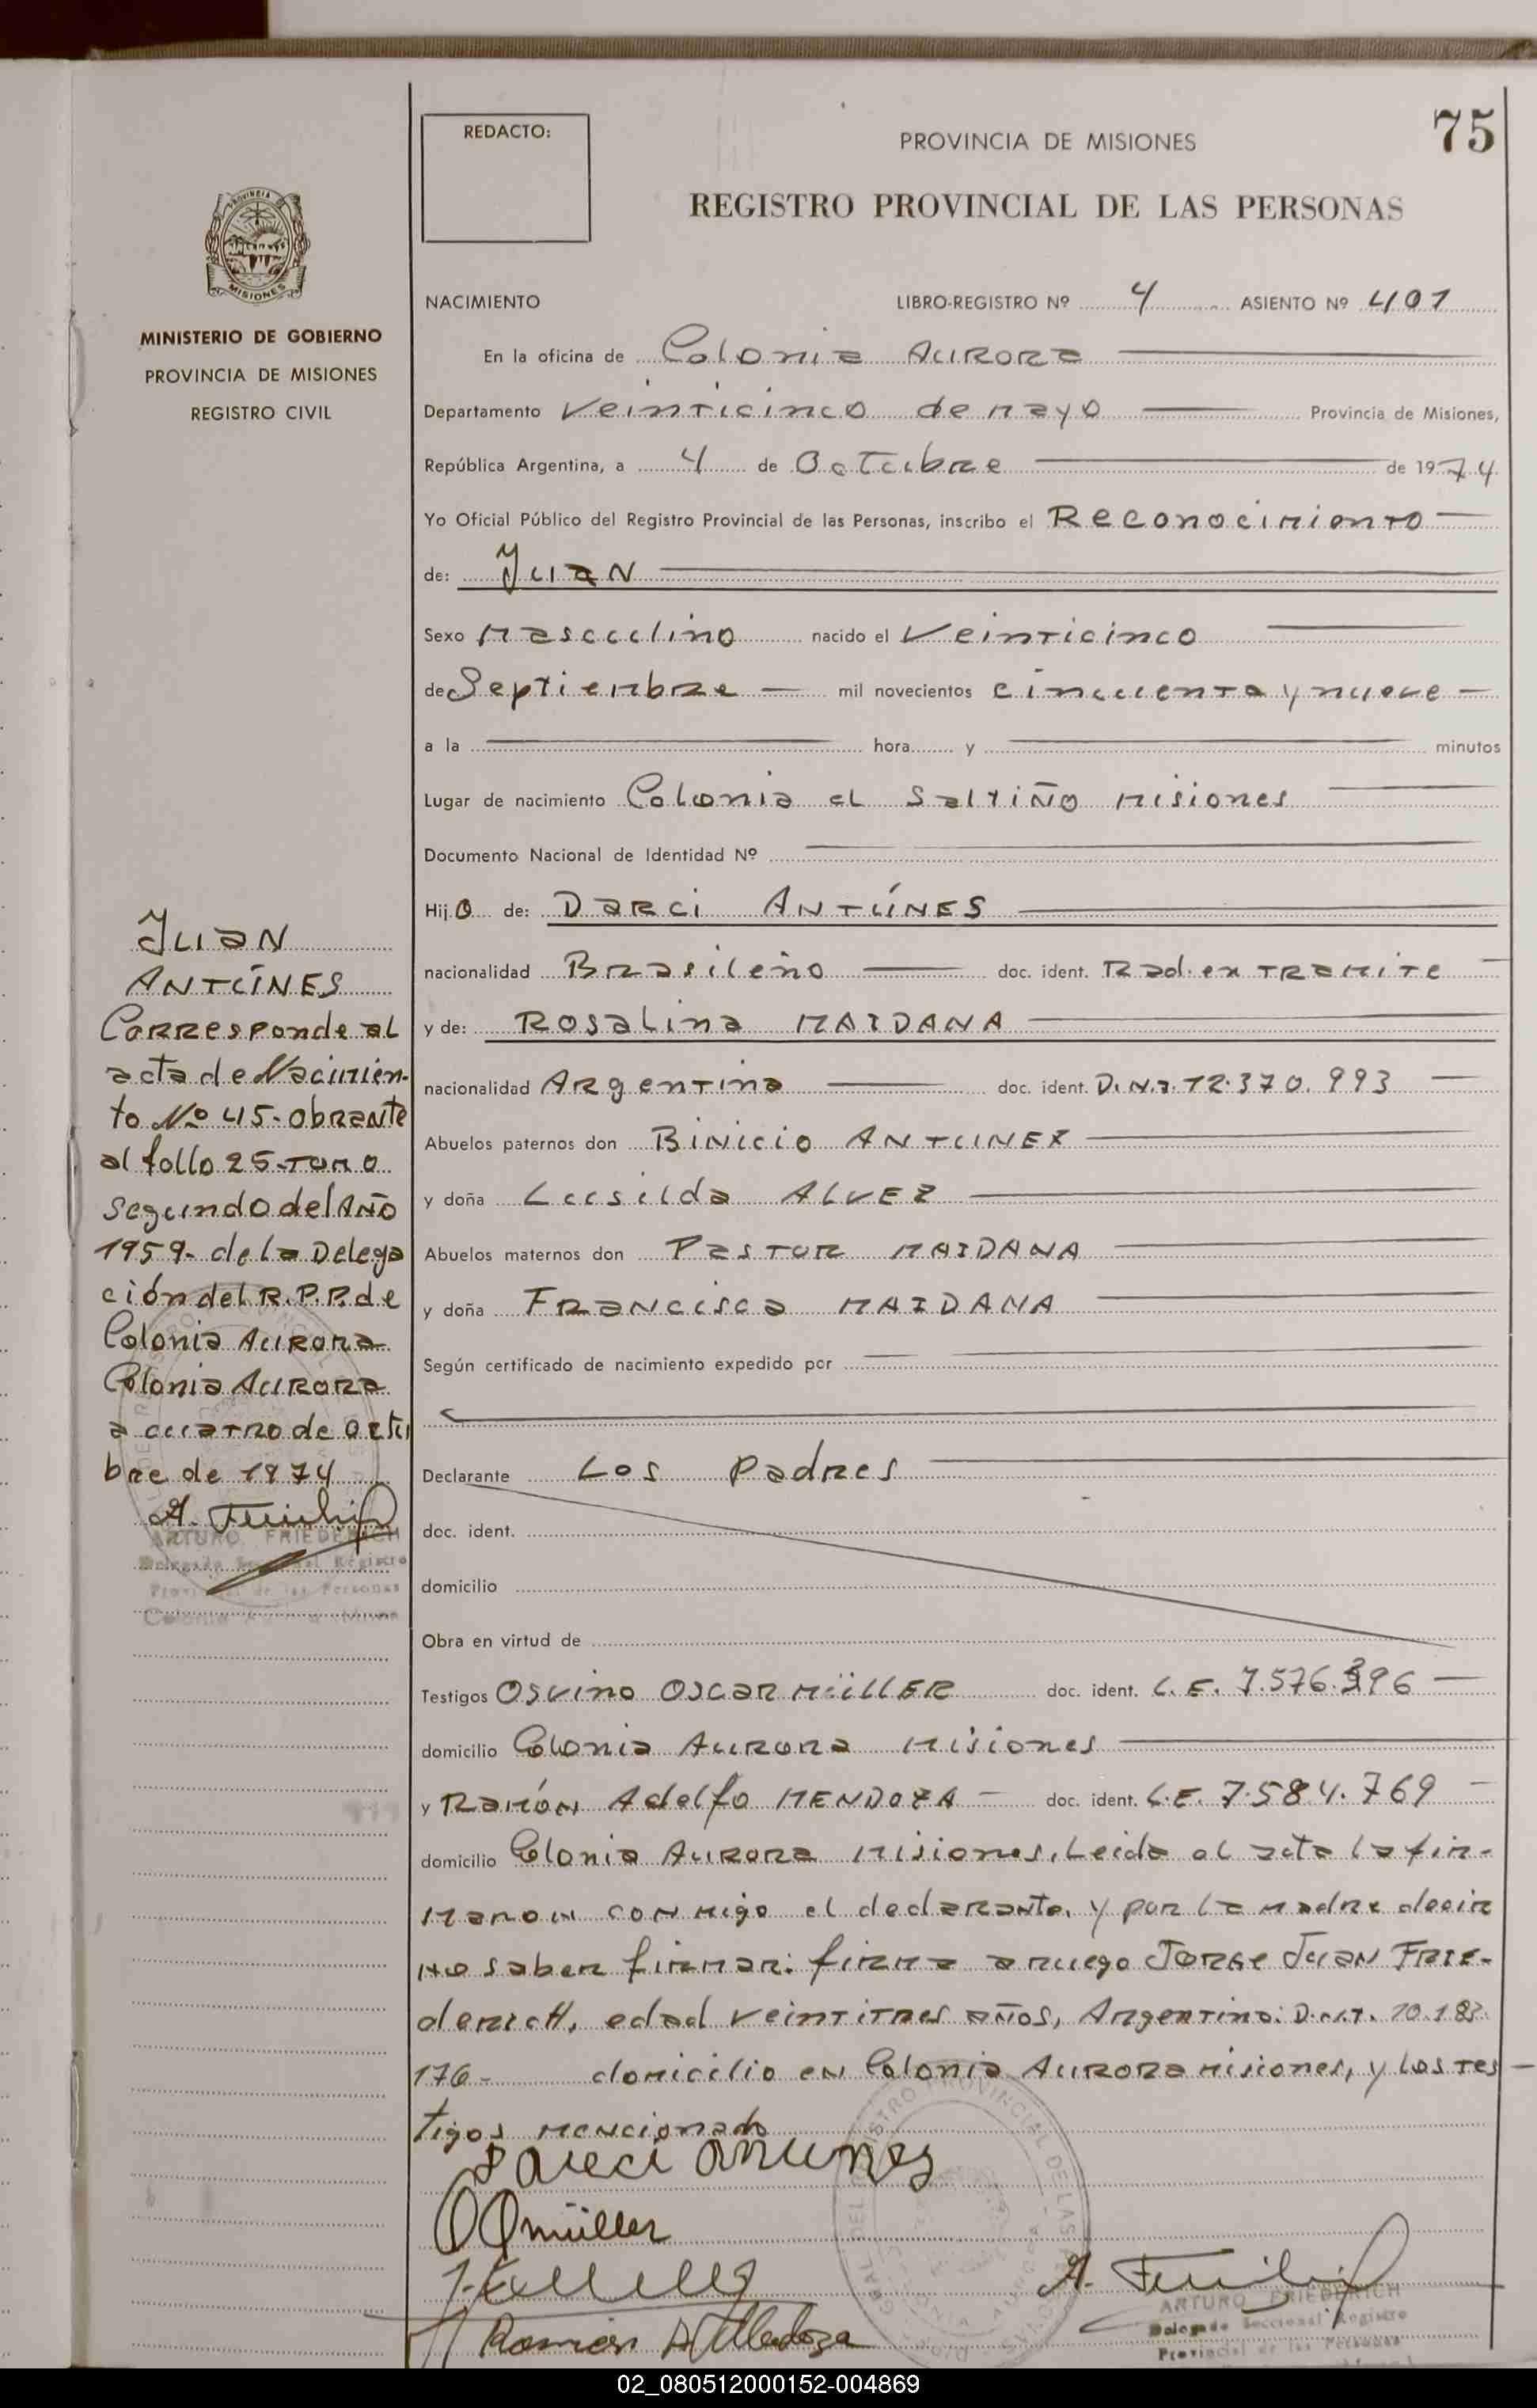 REDACTO:
PROVINCIA DE MISIONES
75
REGISTRO PROVINCIAL DE LAS PERSONAS
MISIONES
MINISTERIO DE GOBIERNO
PROVINCIA DE MISIONES
REGISTRO CIVIL
NACIMIENTO LIBRO-REGISTRO Nº 4 ASIENTO Nº 401
En la oficina de Colonia AURORA
Departamento Veinticinco de mayo Provincia de Misiones,
República Argentina, a 4 de Octubre de 1974
Yo Oficial Público del Registro Provincial de las Personas, inscribo el Reconocimiento
de: Juan
Sexo Masculino nacido el Veinticinco
de Septiembre mil novecientos cincuenta y nueve
a la hora y minutos
Lugar de nacimiento Colonia el Saltiño Misiones
Documento Nacional de Identidad Nº
Hijo de: Darci ANTÚNES
nacionalidad Brasileño doc. ident. Rad. en tramite
y de: Rosalina MAIDANA
nacionalidad Argentina doc. ident. D.N.I. 12.370.993
Abuelos paternos don Binicio ANTUNEZ
y doña Lusilda ALVEZ
Abuelos maternos don Pastor MAIDANA
y doña Francisca MAIDANA
Según certificado de nacimiento expedido por
Declarante Los padres
doc. ident.
domicilio
Obra en virtud de
Testigos Osvino Oscar MÜLLER doc. ident. L.E. 7.576.396
domicilio Colonia Aurora Misiones
y Ramón Adelfo MENDOZA doc. ident. L.E. 7.584.769
domicilio Colonia Aurora Misiones. Leida el acta la fir-
maron conmigo el declarante, y por la madre decir
no saber firmar: firma a ruego Jorge Juan Frie-
derich, edad veintitres años, Argentino: D.N.I. 10.183.
176- domicilio en Colonia Aurora Misiones, y los tes-
tigos mencionado
Darci Antunes
OOmüller
Ramón A Mendoza
A.
ARTURO FRIEDERICH
Delegado Seccional Registro
Provincial de las Personas
Juan
ANTÚNES
Corresponde al
acta de Nacimien-
to Nº 45- obrante
al follo 25-Tomo
segundo del Año
1959- de la Delega
ción del R.P.P. de
Colonia Aurora
Colonia Aurora
a cuatro de octu
bre de 1974
A.
ARTURO FRIEDERICH
Delegado Seccional Registro
Provincial de las Personas
02_080512000152-004869